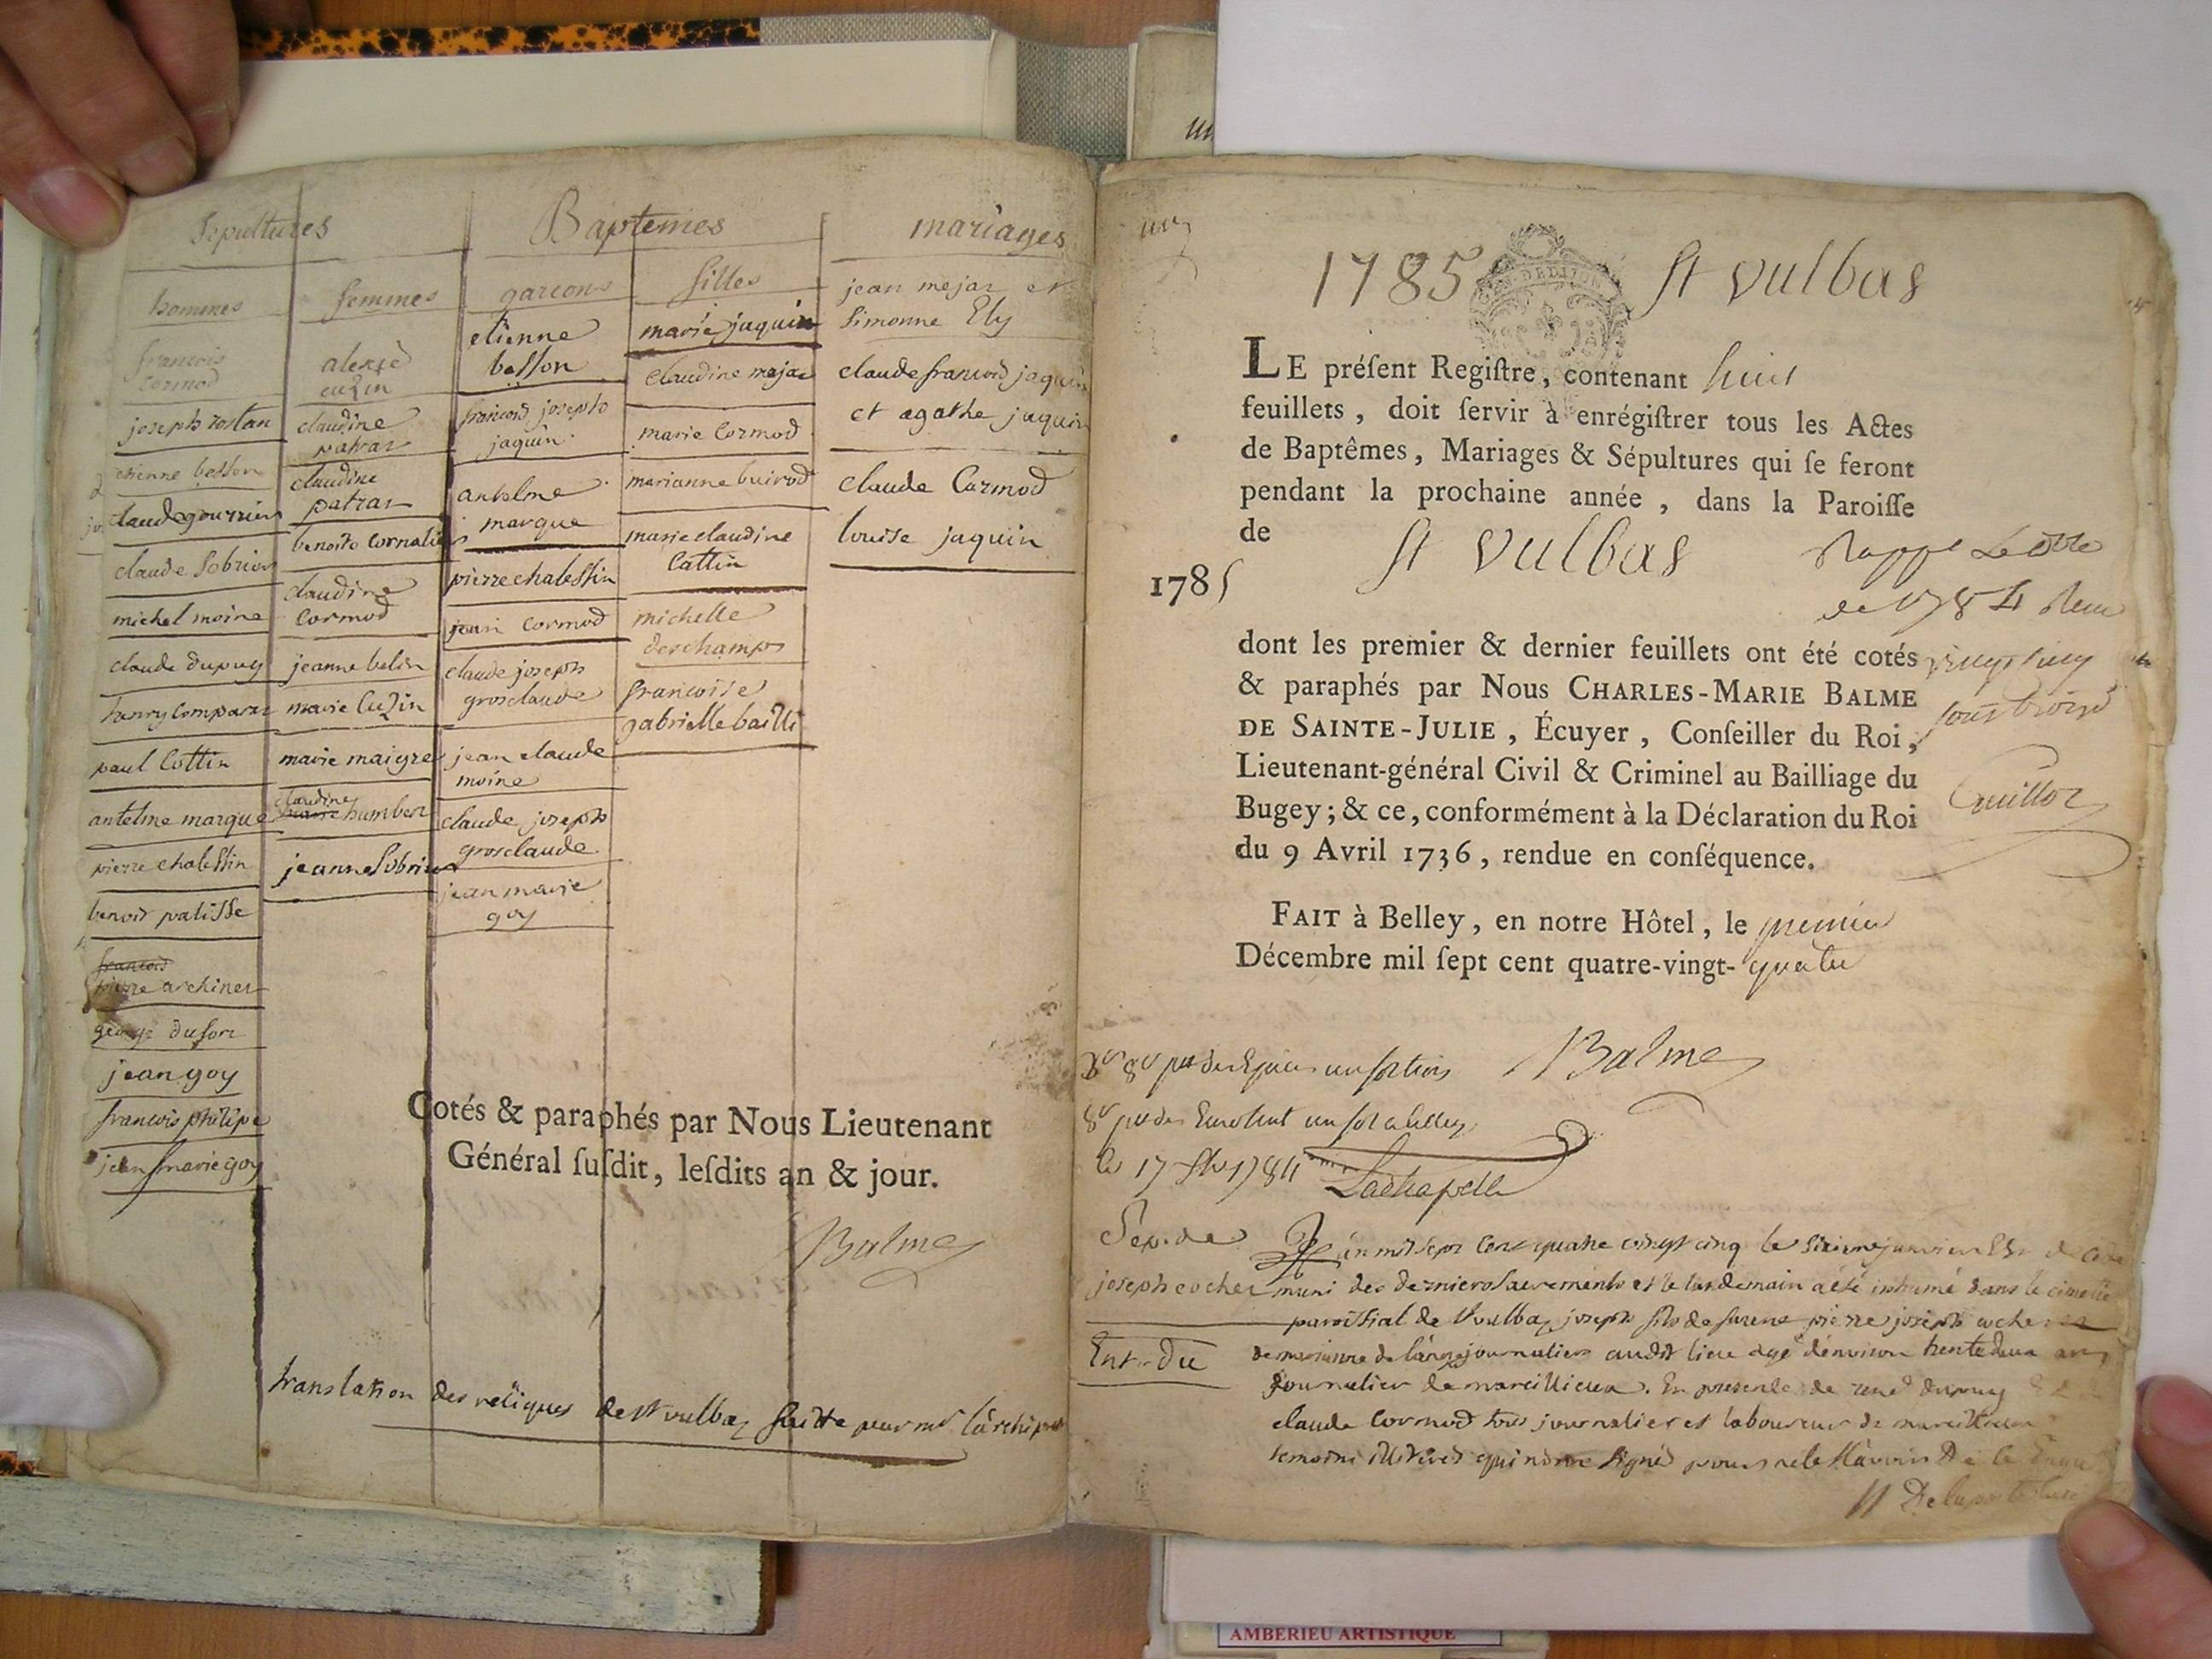 Sepultures
Baptemes
mariages
hommes
femmes
garcons
filles
francois
cormod
joseph rostan
etienne besson
claude gourrion
claude sobrion
michel moine
claude dupuy
henry comparat
paul Cottin
antelme marque
pierre chalessin
benoit palisse
francois
pierre archiner
george dufour
jean goy
francois philipe
jean marie goy
alexse
cuzin
claudine
patras
claudine
patras
benoite Cornalis
claudine
Cormod
jeanne belin
marie Cuzin
marie maigre
claudine
marie humbert
jeanne Sobrion
etienne
besson
francois joseph
jaquin
antelme
marque
pierre chalessin
jean Cormod
claude joseph
grosclaude
jean claude
moine
claude joseph
grosclaude
jean marie
goy
marie jaquin
claudine mejar
marie Cormod
marianne buirod
marie claudine
Cattin
michelle
deschamps
francoise
gabrielle bailli
jean mejar et
Simonne Ely
claude francois jaquin
et agathe jaquin
claude Cormod
louise jaquin
Cotés & paraphés par Nous Lieutenant
Général ſuſdit, leſdits an & jour.
Balme
translation des reliques de st vulbas faitte par mr l'archipr
1785 St Vulbas
LE préſent Regiſtre, contenant huit
feuillets, doit ſervir à enrégiſtrer tous les Actes
de Baptêmes, Mariages & Sépultures qui ſe feront
pendant la prochaine année, dans la Paroiſſe
de St Vulbas
1785
dont les premier & dernier feuillets ont été cotés
& paraphés par Nous CHARLES-MARIE BALME
DE SAINTE-JULIE, Écuyer, Conſeiller du Roi,
Lieutenant-général Civil & Criminel au Bailliage du
Bugey; & ce, conformément à la Déclaration du Roi
du 9 Avril 1736, rendue en conſéquence.
de 1784
Guillot
FAIT à Belley, en notre Hôtel, le premier
Décembre mil ſept cent quatre-vingt-quatre
Balme
le 17 1784
Lachapelle
Sep. de
joseph cocher
Ent. du
L'an mil sept cent quatre vingt cinq le sixieme janvier Est
muni des derniers sacrements et le landemain a été inhumé dans le cimetie
paroissial de st vulbas joseph fils de pierre joseph cocher
de marianne journaliers audit lieu agé d'environ trente deux ans
journalier de marcillieux. En presence de rené dupuy
claude Cormod tous journalier et laboureur de marcillieux
temoins illitirés qui n'ont signés pour ne le sçavoir De ce Enquis
Delaporte curé
AMBERIEU ARTISTIQUE